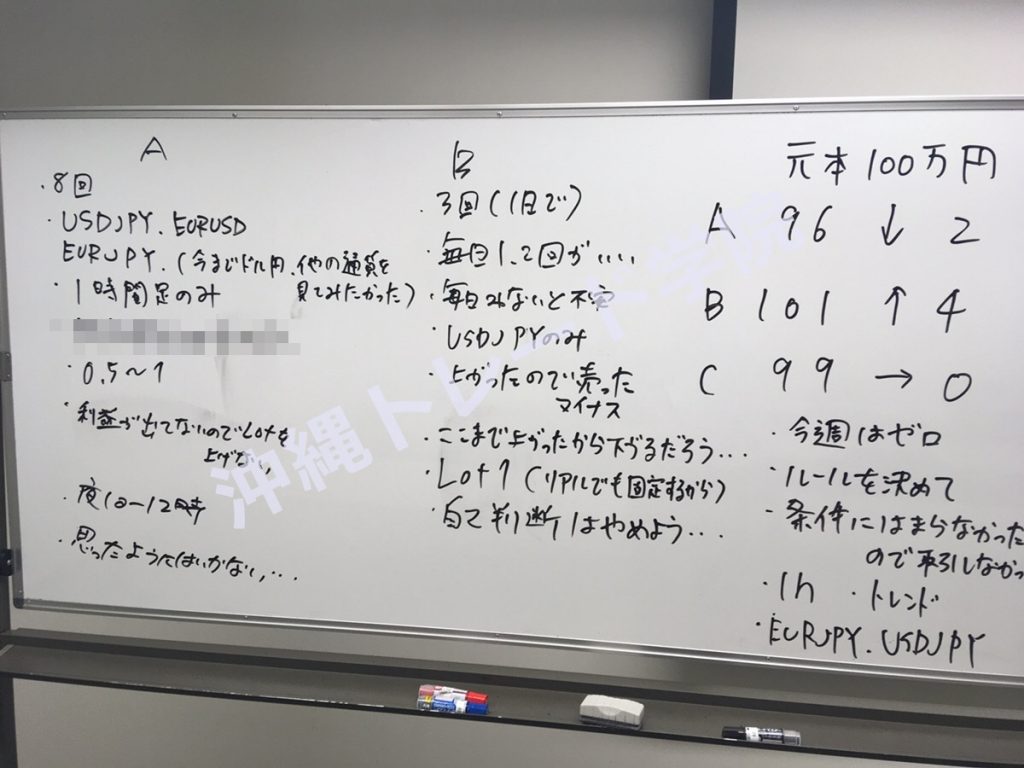 A
・8回
・USDJPY.EURUSD
EURJPY.(今までドル円、他の通貨を
見てみたかった)
・1時間足のみ
・0.5〜1
・利益が出てないのでLotを
上げない
・夜10-12時
・思ったようにはいかない,…
B
・3回(1日で)
・毎日1.2回がいい
・毎日みないと不安
・USDJPYのみ
・上がったので売った
マイナス
・ここまで上がったから下がるだろう…
・Lot1(リアルでも固定するから)
・自己判断はやめよう…
元本100万円
A 96 ↓ 2
B 101 ↑ 4
C 99 → 0
・今週はゼロ
・ルールを決めて
・条件にはまらなかった
ので取引しなかっ
・1h ・トレンド
・EURJPY.USDJPY
沖縄トレード学院